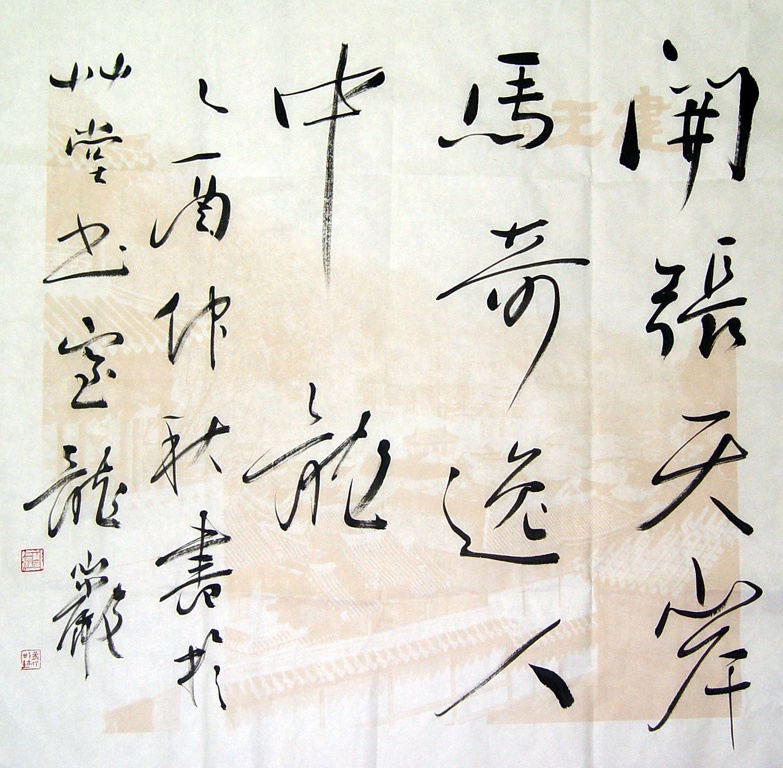 開張天岸
馬奇逸人
中龍
乙酉仲秋書於
艸堂书室龍巖